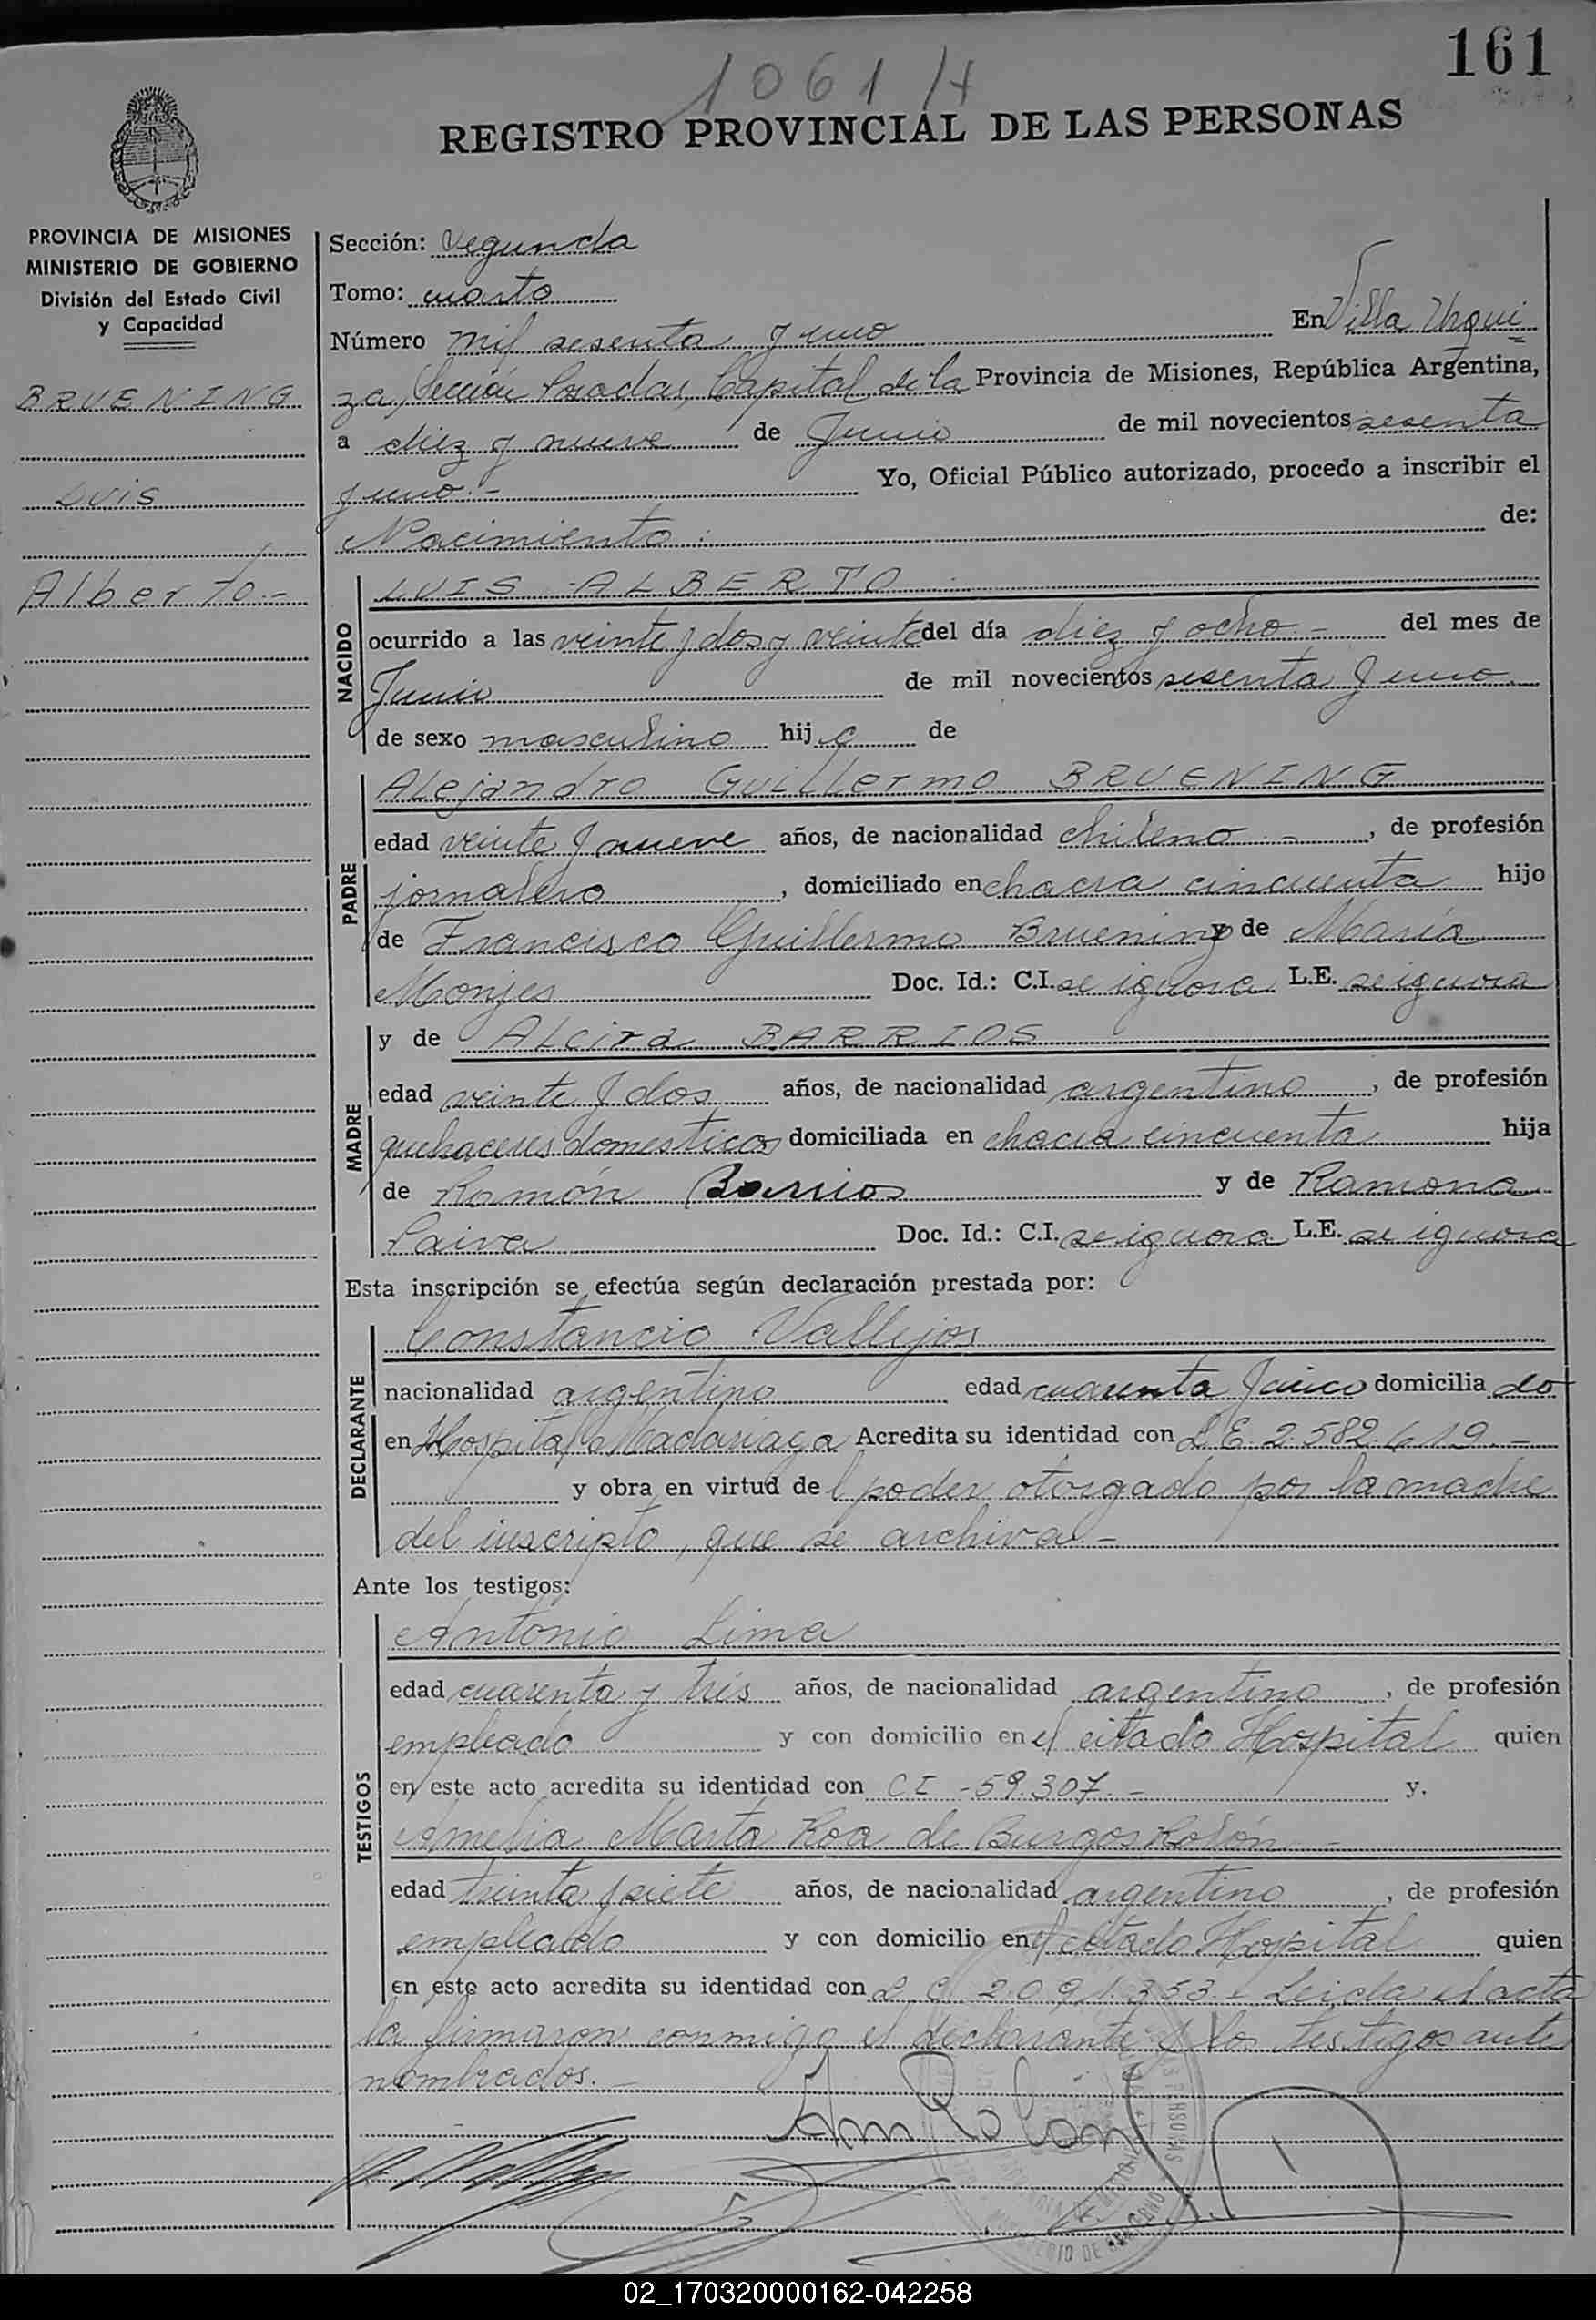 161
1061 /4
REGISTRO PROVINCIAL DE LAS PERSONAS
PROVINCIA DE MISIONES
MINISTERIO DE GOBIERNO
División del Estado Civil
y Capacidad
BRUENING
LUIS
Alberto.-
Sección: Segunda
Tomo: cuarto
Número mil sesenta y uno En Villa Urqui
za, Sección Posadas, Capital de la Provincia de Misiones, República Argentina,
a diez y nueve de Junio de mil novecientos sesenta
y uno.- Yo, Oficial Público autorizado, procedo a inscribir el
Nacimiento: de:
NACIDO
LUIS ALBERTO
ocurrido a las veinte y dos y veinte del día diez y ocho.- del mes de
Junio de mil novecientos sesenta y uno.
de sexo masculino hijo de
PADRE
Alejandro Guillermo BRUENING
edad veinte y nueve años, de nacionalidad chileno -, de profesión
jornalero, domiciliado en chacra cincuenta hijo
de Francisco Guillermo Bruening y de María
Monjes Doc. Id.: C.I. se ignora L.E. se ignora
MADRE
y de Alcira BARRIOS
edad veinte y dos años, de nacionalidad argentino, de profesión
quehaceres domesticos domiciliada en chacra cincuenta hija
de Ramón Barrios y de Ramona
Paiva Doc. Id.: C.I. se ignora L.E. se ignora
Esta inscripción se efectúa según declaración prestada por:
DECLARANTE
Constancio Vallejos
nacionalidad argentino edad cuarenta y cinco domicilia do
en Hospital Madariaga Acredita su identidad con L E. 2.582.619.-
y obra en virtud de l poder otorgado por la madre
del inscripto, que se archiva.-
Ante los testigos:
TESTIGOS
Antonio Lima
edad cuarenta y trés años, de nacionalidad argentino, de profesión
empleado y con domicilio en el citado Hospital quien
en este acto acredita su identidad con CI -59.307.- y.
Amelia Marta Roa de Burgos Rolón -
edad treinta y siete años, de nacionalidad argentino, de profesión
empleado y con domicilio en el citado Hospital quien
en este acto acredita su identidad con L C 2.091.353.- Leida el acta
la firmaron conmigo el declarante y los testigos ante
nombrados.-
Am Rolon
02_170320000162-042258